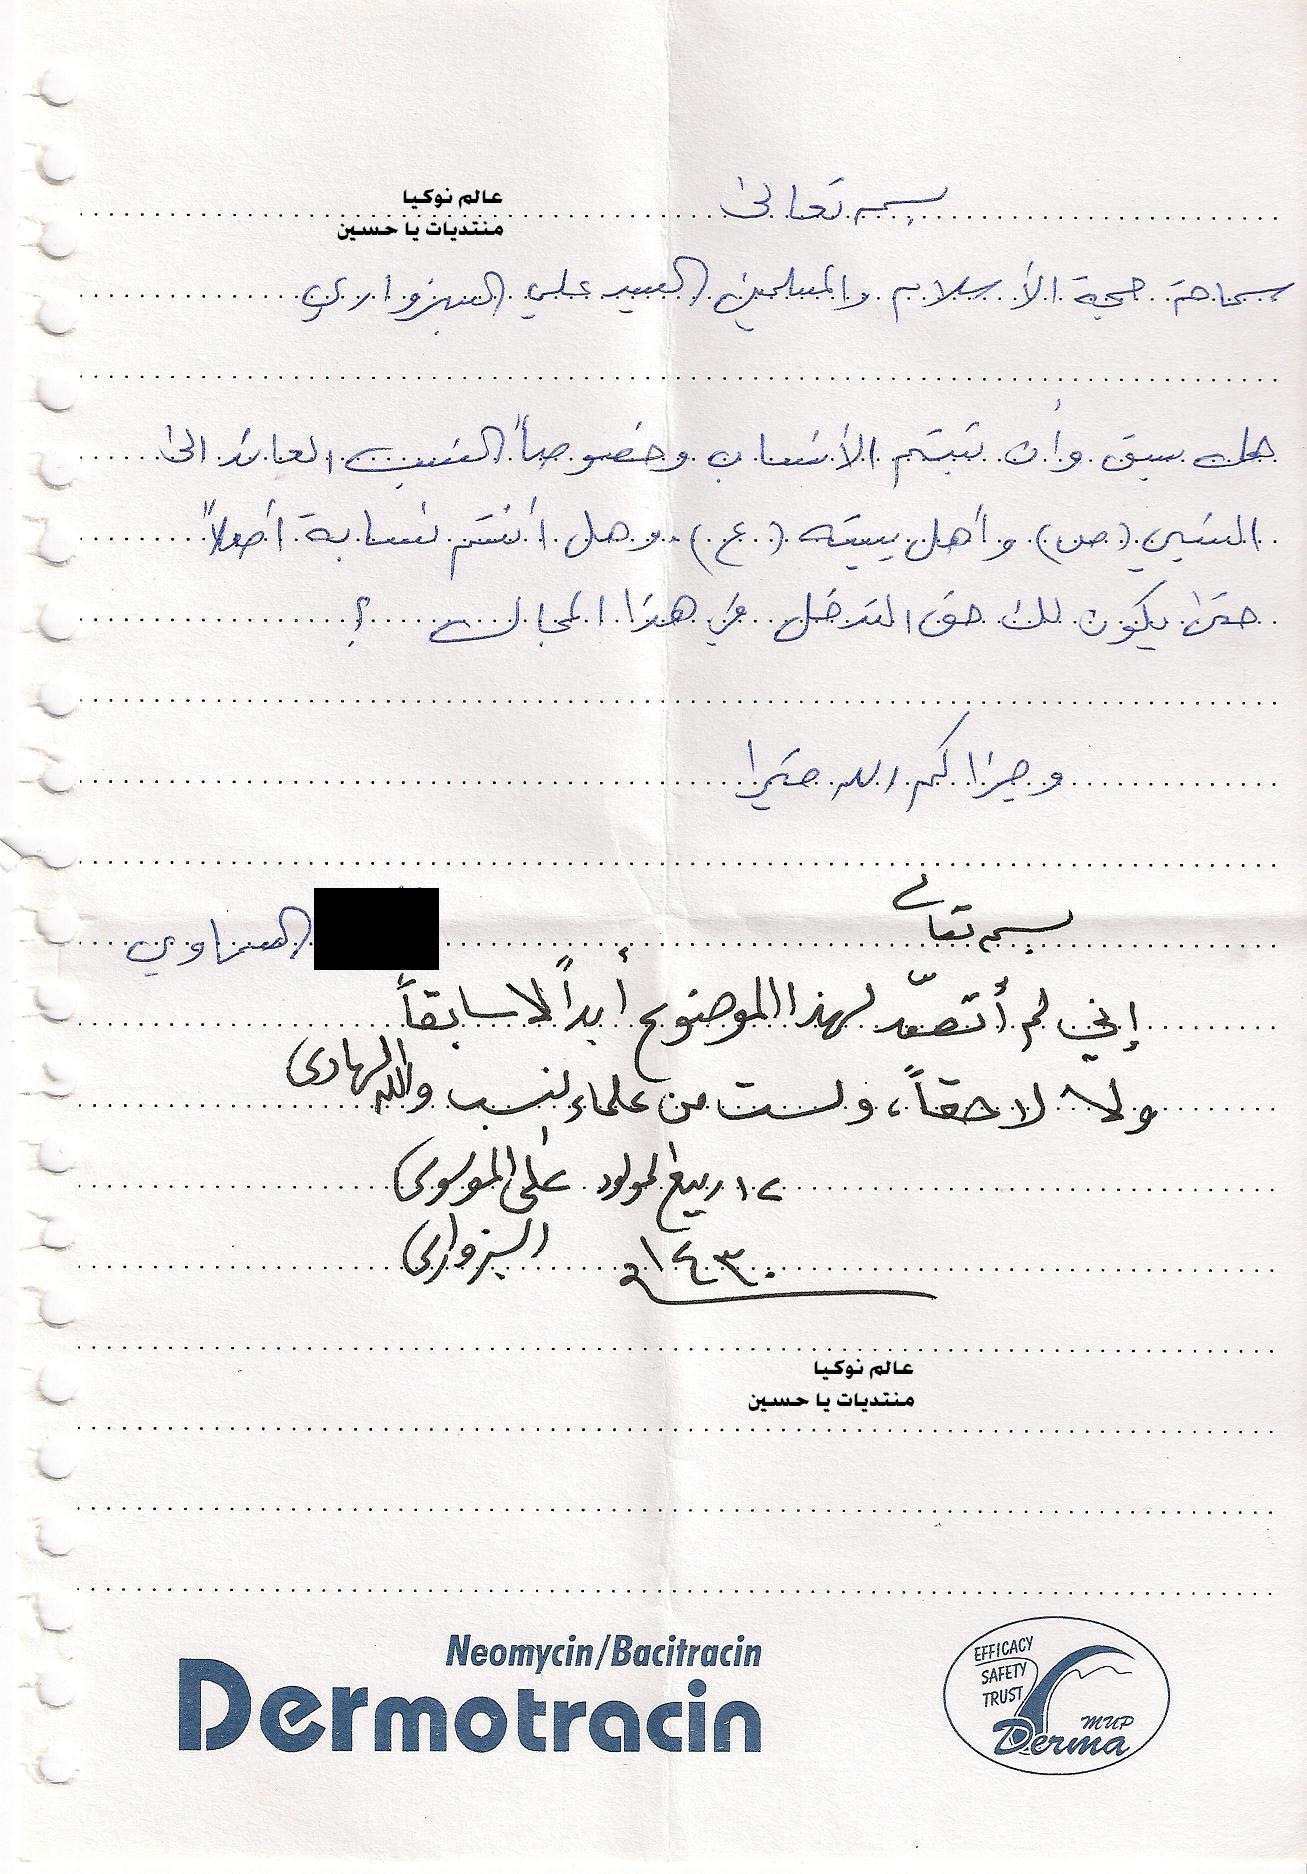 عالم نوكيا
منتديات يا حسين
بسمه تعالى
سماحة حجة الأسلام والمسلمين السيد علي السبزواري
هل سبق وأن ثبتم الأنساب وخصوصاً النسب العائد الى
النبي (ص) وأهل بيته (ع). وهل أنتم نسابة أصلاً
حتى يكون لك حق التدخل في هذا المجال ؟
وجزاكم الله خيرا
بسمه تعالى
إني لم أتصدّ لهذا الموضوع أبداً لا سابقاً
ولا لاحقاً، ولست من علماء النسب والله الهادي
١٢ ربيع المولود علي الموسوي
١٤٣٠ السبزواري
عالم نوكيا
منتديات يا حسين
Neomycin/Bacitracin
Dermotracin
EFFICACY
SAFETY
TRUST
MUP
Derma